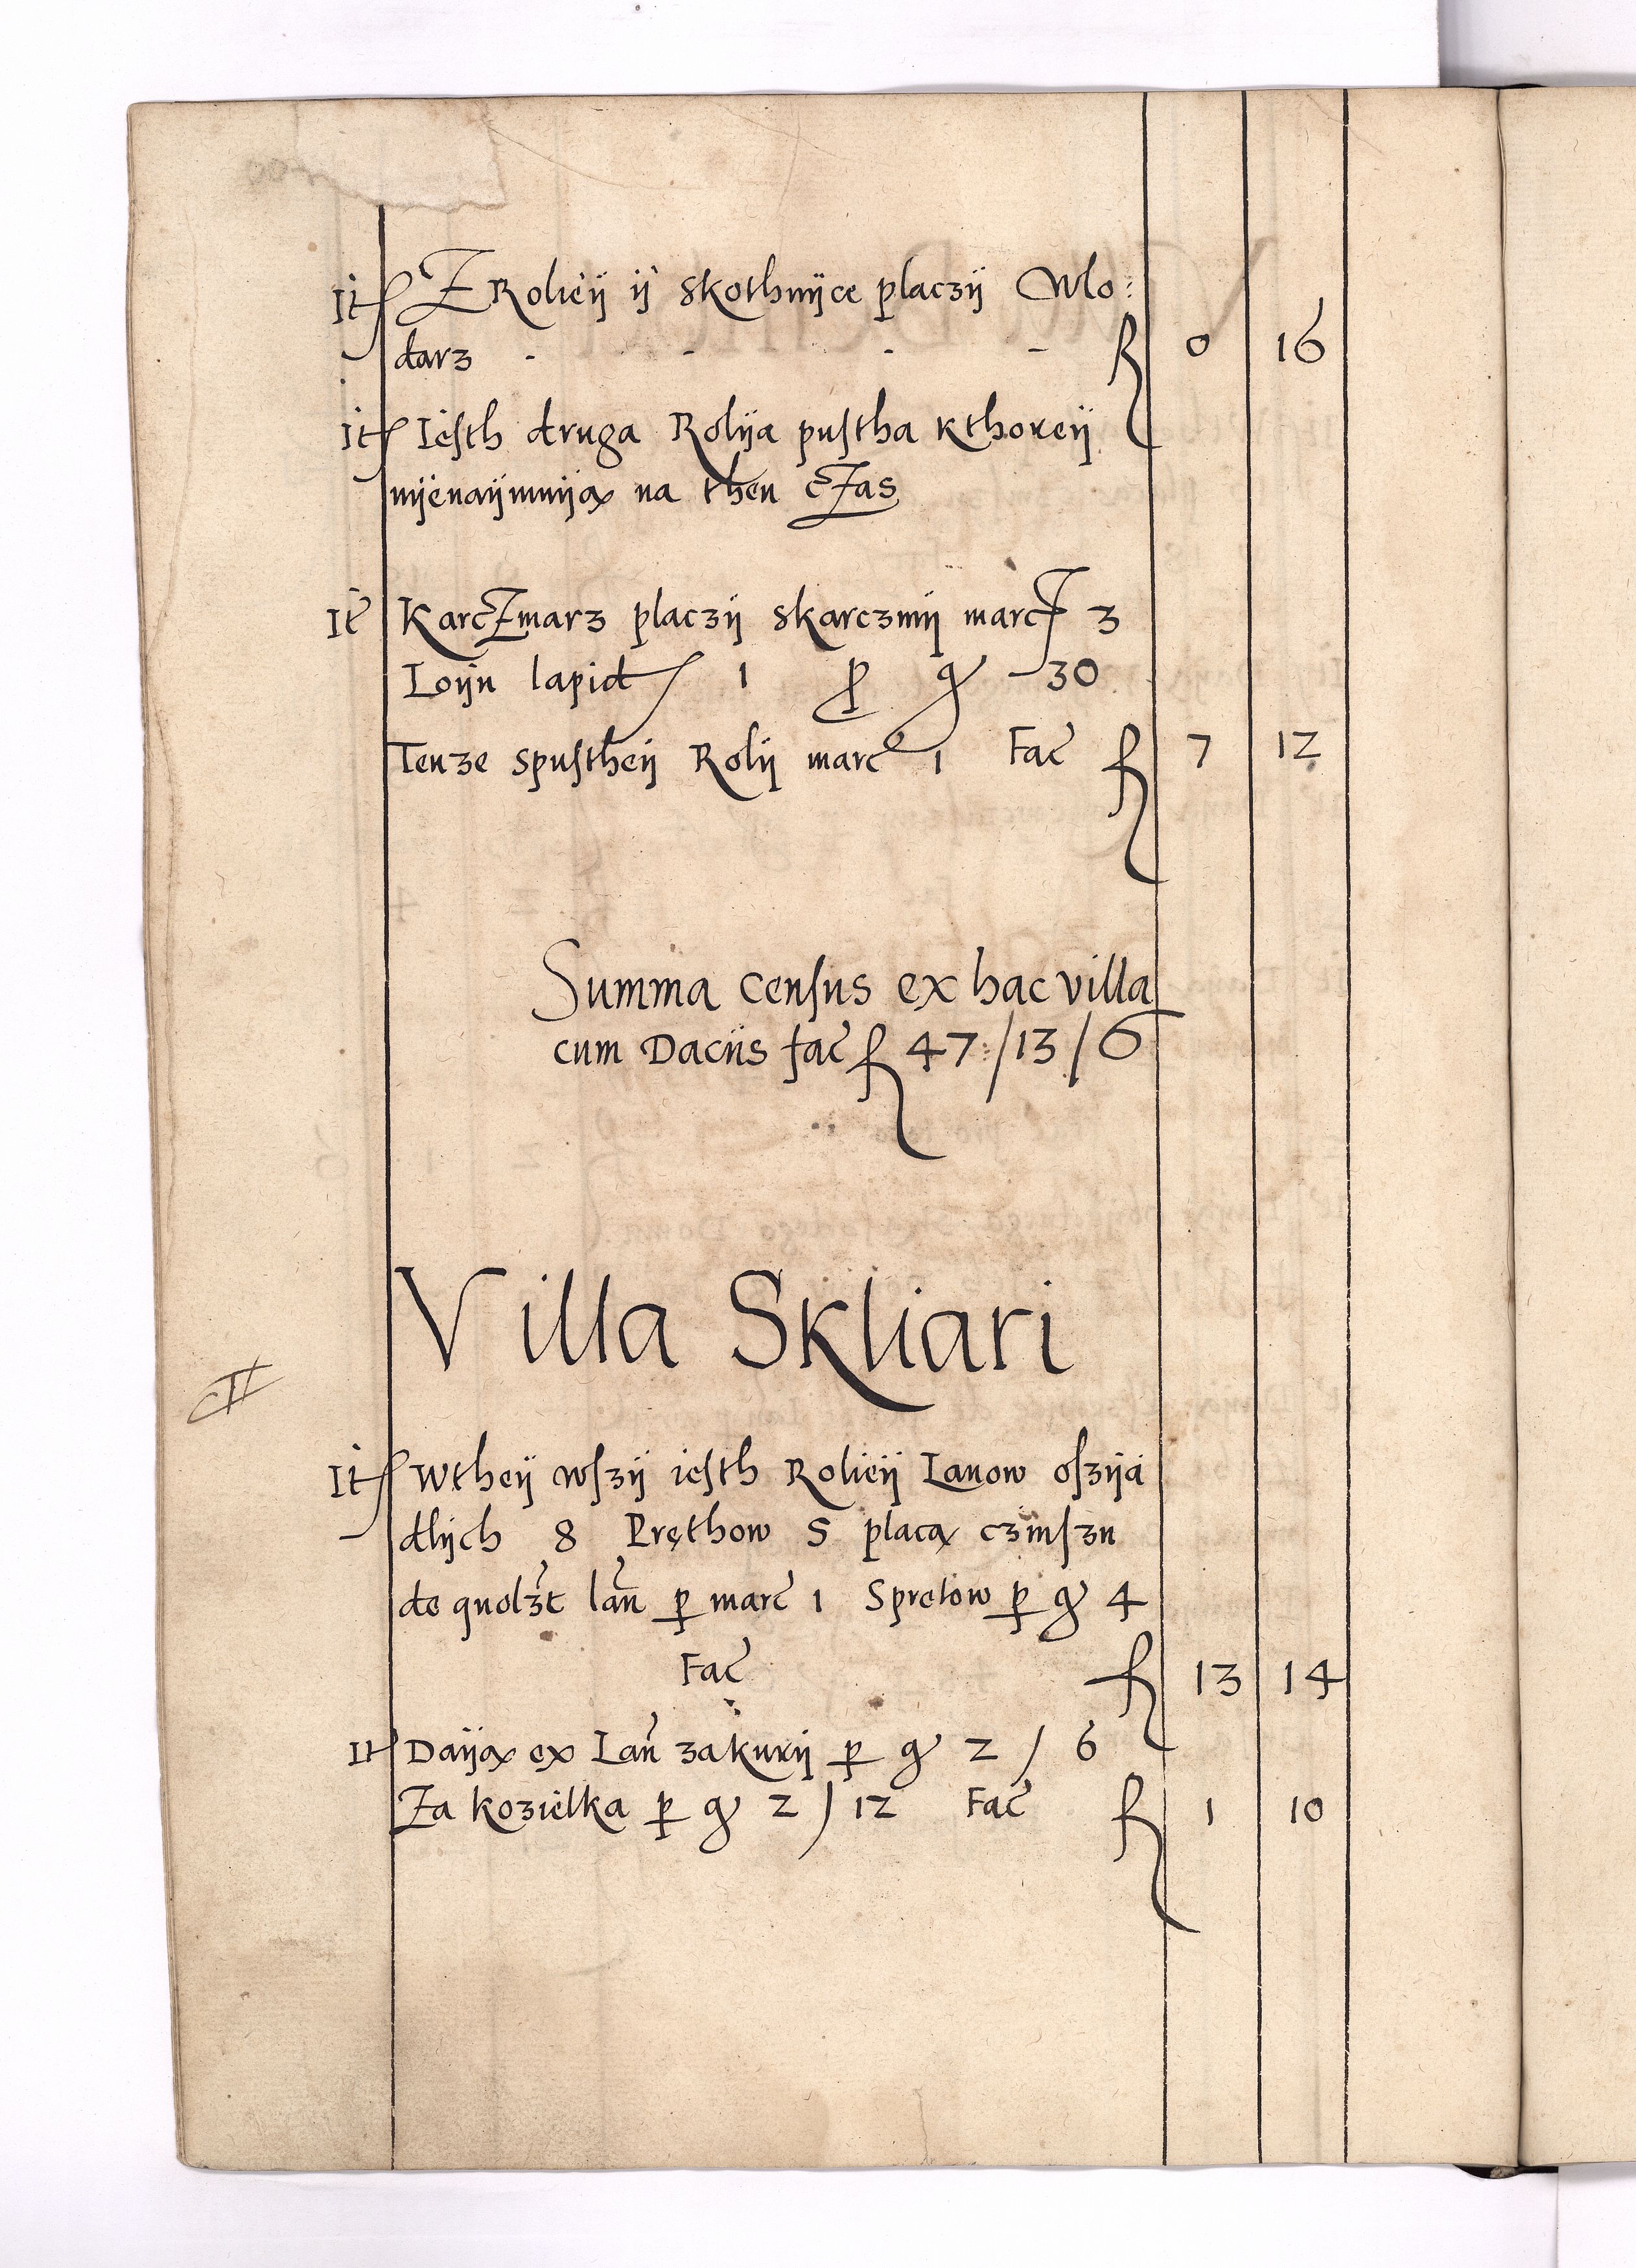 It Z Rolieÿ ÿ skothnÿce placzÿ Wlo:
darz - - - - fl 0 16
it Iesth druga Rolÿa pustha kthoreÿ
nÿenaÿmuÿą na then cZas
It Karczmarz placzÿ skarczmÿ marc 3
Loÿu lapid 1 p g 30
Tenze spustheÿ Rolÿ marc 1 Fac fl 7 12
Summa census ex hac villa
cum Daciis fac fl 47 /13 /6
Villa Skliari
It Wtheÿ wszÿ iesth Rolieÿ Lanow oszÿa
dlÿch 8 Pręthow 5 placą czinszu
de quolzt lan p marc 1 Spretow p g 4
Fac fl 13 14
It Daÿą ex Lan zakurÿ p g 2 / 6
Za kozielka p g 2 / 12 Fac fl 1 10